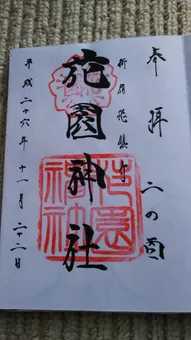 奉拝
二の酉
新宿総鎮守
花園神社
花園神社
平成二十六年十一月二十二日